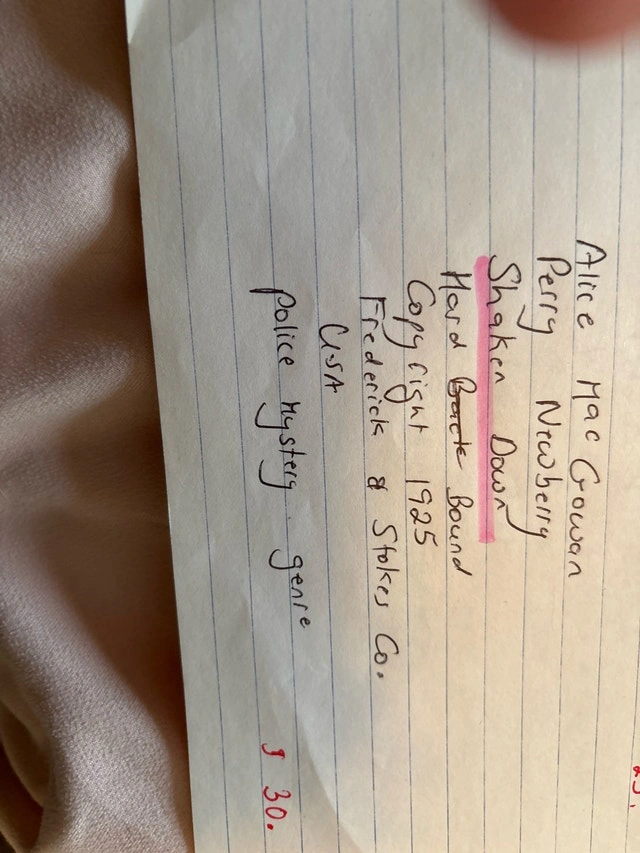 Alice MacGowan
Perry Newberry
Shaken Down
Hard Back Bound
Copyright 1925
Frederick & Stokes Co.
USA
Police Mystery. genre
$ 30.